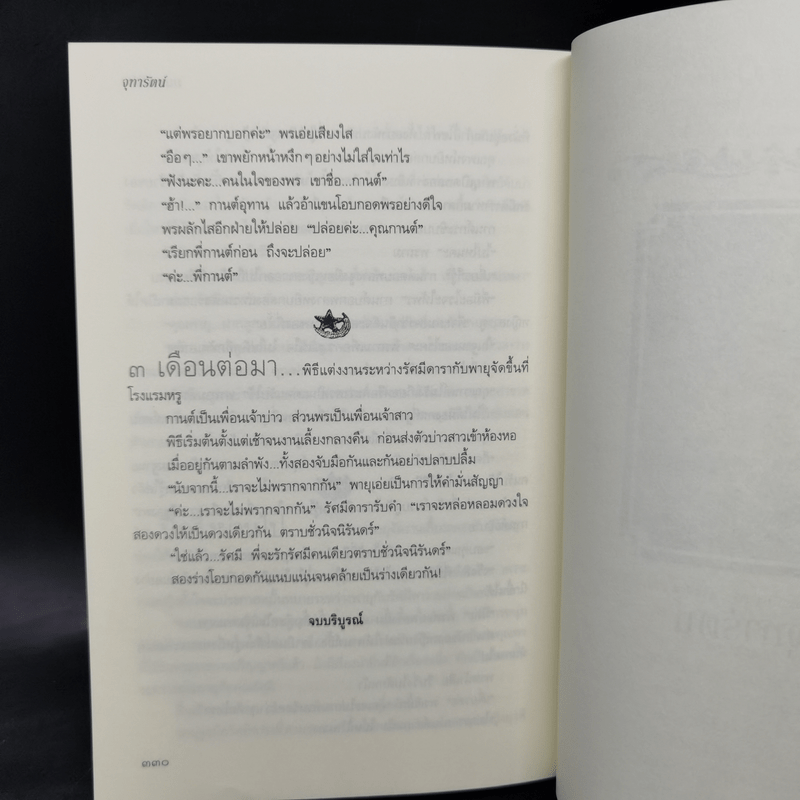 จุฑารัตน์
“แต่พรอยากบอกค่ะ” พรเอ่ยเสียงใส
“อือๆ...” เขาพยักหน้าหงึกๆ อย่างไม่ใส่ใจเท่าไร
“ฟังนะคะ...คนในใจของพร เขาชื่อ...กานต์”
“ฮ้า!...” กานต์อุทาน แล้วอ้าแขนโอบกอดพรอย่างดีใจ
พรผลักไสอีกฝ่ายให้ปล่อย “ปล่อยค่ะ...คุณกานต์”
“เรียกพี่กานต์ก่อน ถึงจะปล่อย”
“ค่ะ...พี่กานต์”
๓ เดือนต่อมา...พิธีแต่งงานระหว่างรัศมีดารากับพายุจัดขึ้นที่
โรงแรมหรู
กานต์เป็นเพื่อนเจ้าบ่าว ส่วนพรเป็นเพื่อนเจ้าสาว
พิธีเริ่มต้นตั้งแต่เช้าจนงานเลี้ยงกลางคืน ก่อนส่งตัวบ่าวสาวเข้าห้องหอ
เมื่ออยู่กันตามลำพัง...ทั้งสองจับมือกันและกันอย่างปลาบปลื้ม
“นับจากนี้...เราจะไม่พรากจากกัน” พายุเอ่ยเป็นการให้คำมั่นสัญญา
“ค่ะ...เราจะไม่พรากจากกัน” รัศมีดารารับคำ “เราจะหล่อหลอมดวงใจ
สองดวงให้เป็นดวงเดียวกัน ตราบชั่วนิจนิรันดร์”
“ใช่แล้ว...รัศมี พี่จะรักรัศมีคนเดียวตราบชั่วนิจนิรันดร์”
สองร่างโอบกอดกันแนบแน่นจนคล้ายเป็นร่างเดียวกัน!
จบบริบูรณ์
๓๓๐